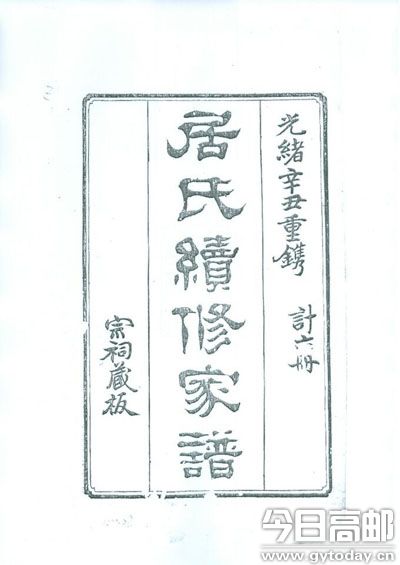 光緒辛丑重鐫　計六冊
居氏續修家譜
宗祠藏板
今日高邮
www.gytoday.cn